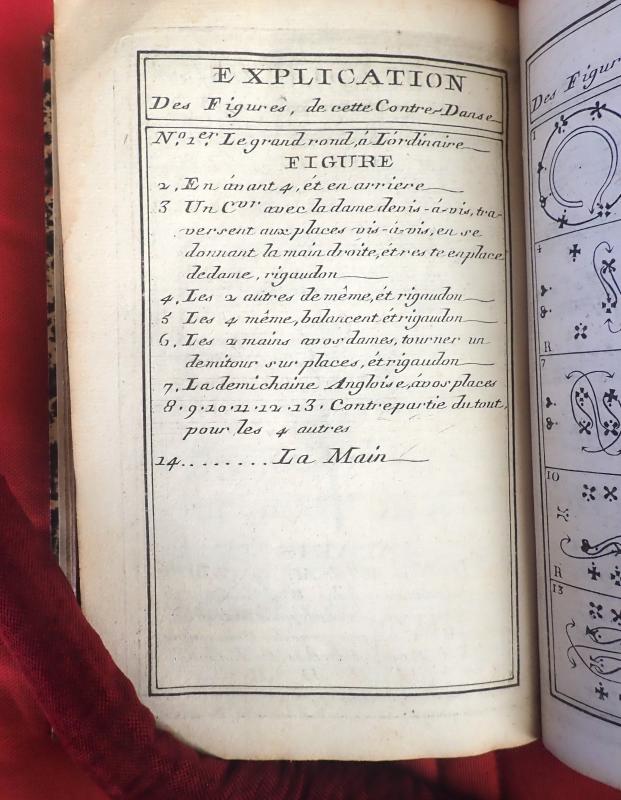 EXPLICATION
Des Figures, de cette Contre-Danse
No. 1er. Le grand rond, á Lórdinaire
FIGURE
2. En ávant 4, ét en arriere
3 Un Cvr avec la dame devis-á-vis, tra-
versent aux places vis-á-vis, en se
donnant la main droite, ét res te en place
de dame, rigaudon
4. Les 2 autres de même, ét rigaudon
5 Les 4 même, balancent ét rigaudon
6. Les 2 mains avos dames, tourner un
demi tour sur places, ét rigaudon
7. La demi chaine Angloise, ávos places
8. 9. 10. 11. 12. 13. Contre partie du tout,
pour les 4 autres
14........ La Main
Des Figur
1
4
R
7
10
R
13